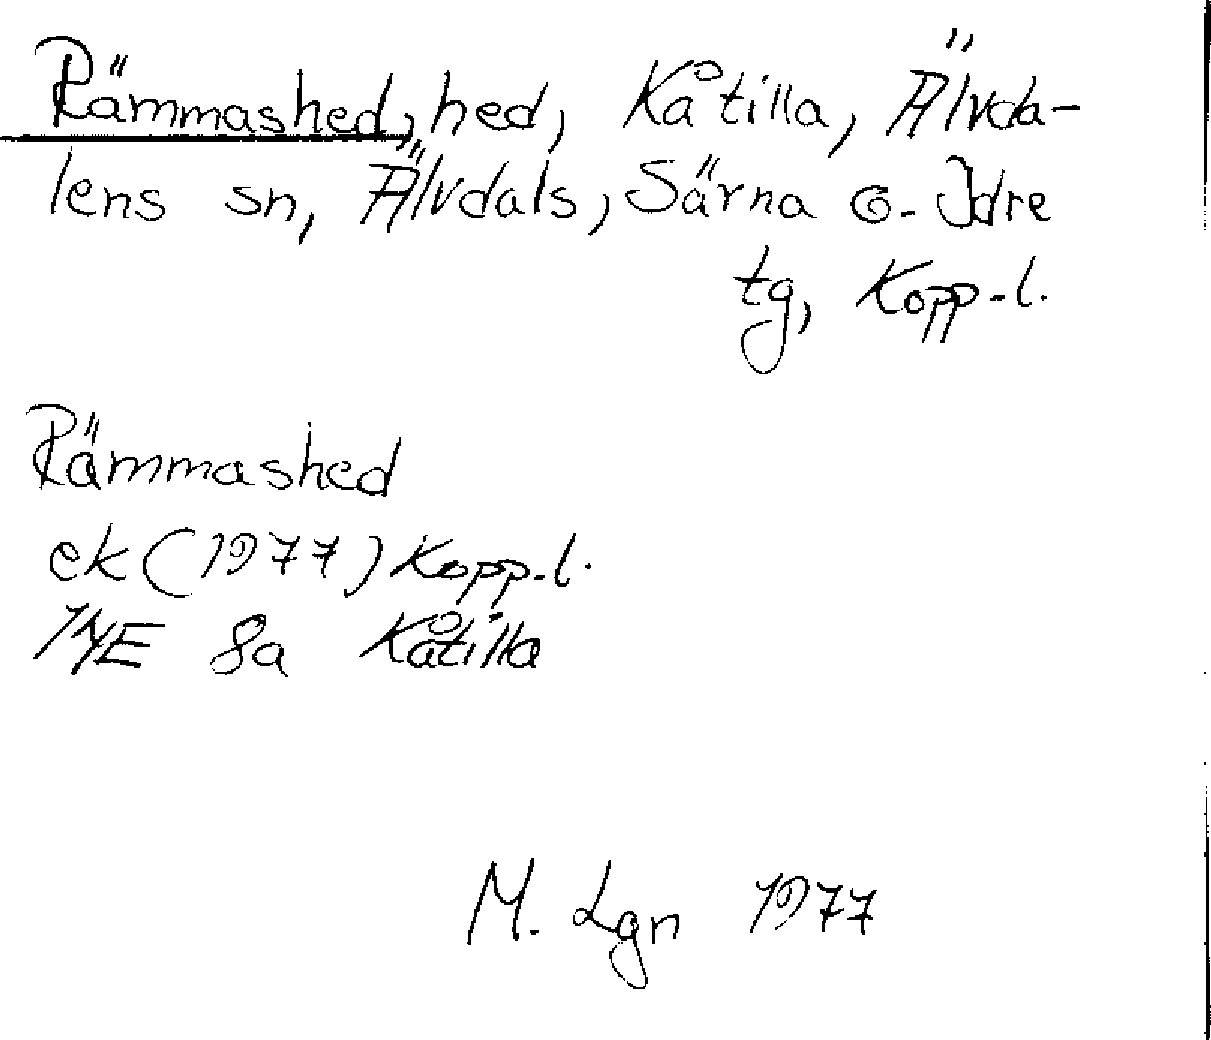 Rämmashed, hed, Kåtilla, Älvda-
lens sn, Älvdals, Särna o. Idre
tg, Kopp-l.
Rämmashed
ek (1977) Kopp-l.
14E 8a Kåtilla
M. Lgn 1977